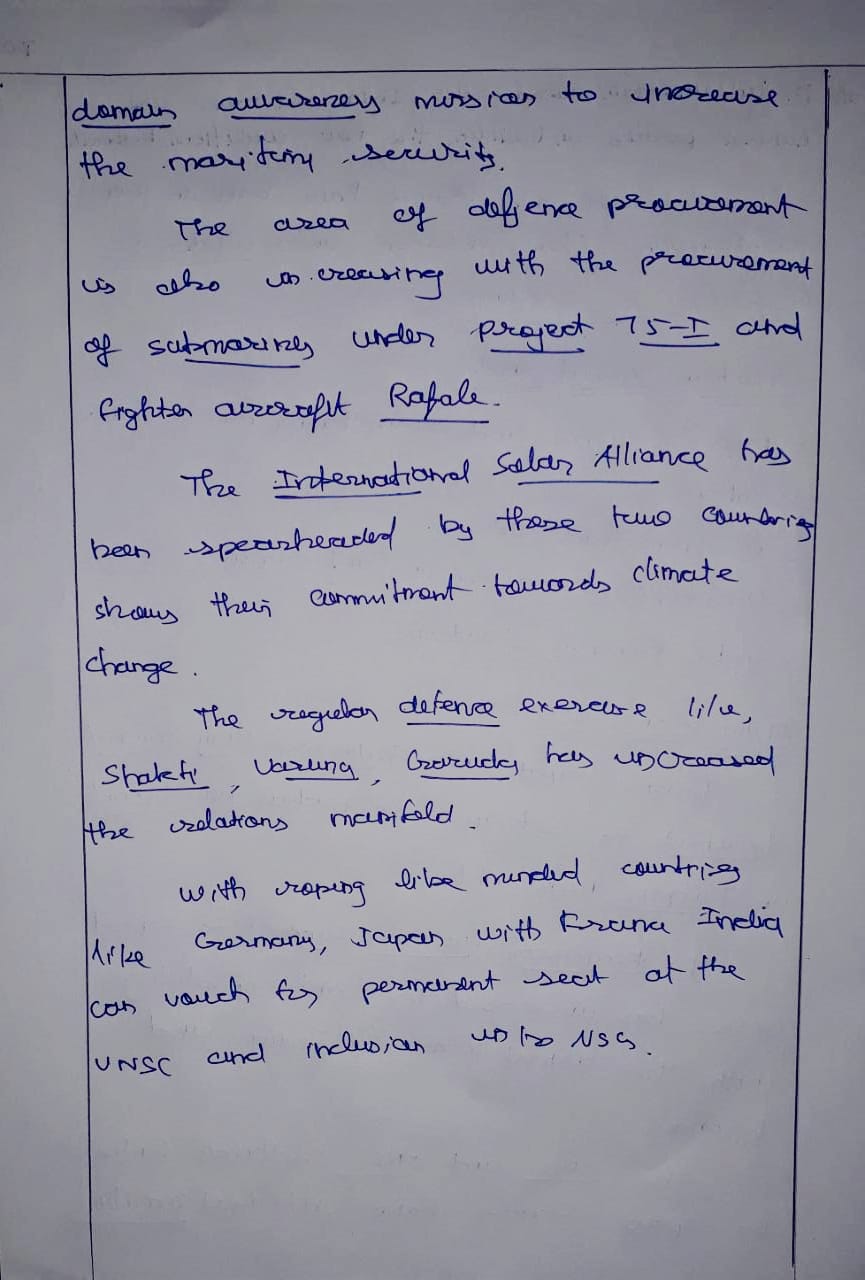 domain awareness mission to increase
the maritim security.
The area of defence procurement
is also increasing with the procurement
of submarines under project 75-I and
fighter aircraft Rafale.
The International Solar Alliance has
been spearheaded by these two countries
shows their commitment towards climate
change.
The regular defence exercise like,
Shakti, Varuna, Garuda has increased
the relations manifold.
With roping like minded countries
like Germany, Japan with France India
can vouch for permanent seat at the
UNSC and inclusion into NSG.